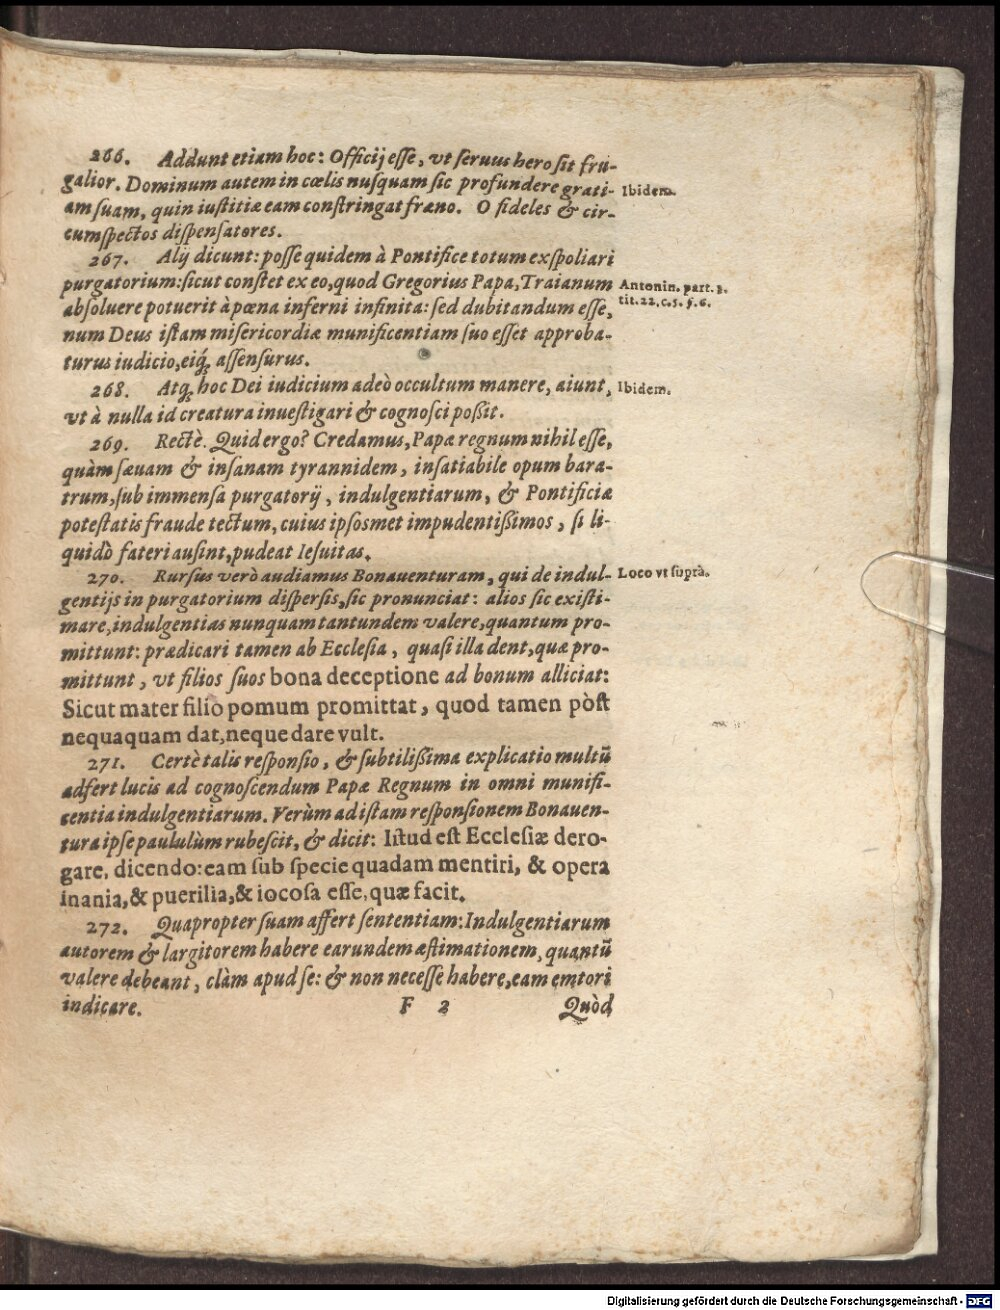 266. Addunt etiam hoc: Officij eſſe, vt ſeruus hero ſit fru-
galior. Dominum autem in cœlis nuſquam ſic profundere grati-
am ſuam, quin iuſtitiæ eam conſtringat fræno. O fideles & cir-
cumſpectos diſpenſatores.
Ibidem.
267. Alij dicunt: poſſe quidem à Pontifice totum exſpoliari
purgatorium: ſicut conſtet ex eo, quod Gregorius Papa, Traianum
abſoluere potuerit à pœna inferni infinita: ſed dubitandum eſſe,
num Deus iſtam miſericordiæ munificentiam ſuo eſſet approba-
turus iudicio, eiq́; aſſenſurus.
Antonin. part. 3.
tit. 22. c. 5. §. 6.
268. Atq́; hoc Dei iudicium adeò occultum manere, aiunt,
vt à nulla id creatura inueſtigari & cognoſci poßit.
Ibidem.
269. Rectè. Quid ergo? Credamus, Papæ regnum nihil eſſe,
quàm ſæuam & inſanam tyrannidem, inſatiabile opum bara-
trum, ſub immenſa purgatorij, indulgentiarum, & Pontificiæ
poteſtatis fraude tectum, cuius ipſosmet impudentißimos, ſi li-
quidò fateri auſint, pudeat Ieſuitas.
270. Rurſus verò audiamus Bonauenturam, qui de indul-
gentijs in purgatorium diſperſis, ſic pronunciat: alios ſic exiſti-
mare, indulgentias nunquam tantundem valere, quantum pro-
mittunt: prædicari tamen ab Eccleſia, quaſi illa dent, quæ pro-
mittunt, vt filios ſuos bona deceptione ad bonum alliciat:
Sicut mater filio pomum promittat, quod tamen pòſt
nequaquam dat, neque dare vult.
Loco vt ſuprà.
271. Certè talis reſponſio, & ſubtilißima explicatio multū
adfert lucis ad cognoſcendum Papæ Regnum in omni munifi-
centia indulgentiarum. Verùm ad iſtam reſponſionem Bonauen-
tura ipſe paululùm rubeſcit, & dicit: Iſtud eſt Eccleſiæ dero-
gare, dicendo: eam ſub ſpecie quadam mentiri, & opera
inania, & puerilia, & iocoſa eſſe, quæ facit.
272. Quapropter ſuam affert ſententiam: Indulgentiarum
autorem & largitorem habere earundem æſtimationem, quantū
valere debeant, clàm apud ſe: & non neceſſe habere, eam emtori
indicare.
F 2
Quòd
Digitalisierung gefördert durch die Deutsche Forschungsgemeinschaft - DFG